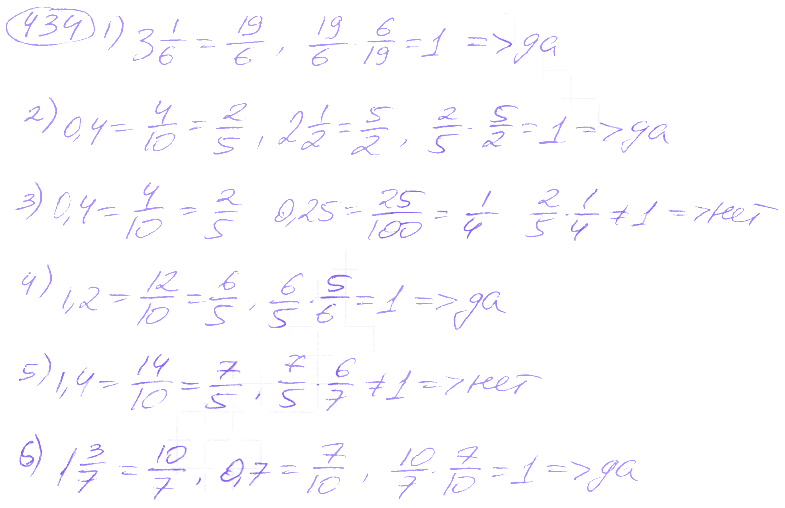 434 1) 3 1/6 = 19/6, 19/6 · 6/19 = 1 => да
2) 0,4 = 4/10 = 2/5, 2 1/2 = 5/2, 2/5 · 5/2 = 1 => да
3) 0,4 = 4/10 = 2/5 0,25 = 25/100 = 1/4 2/5 · 1/4 ≠ 1 => нет
4) 1,2 = 12/10 = 6/5, 6/5 · 5/6 = 1 => да
5) 1,4 = 14/10 = 7/5, 7/5 · 6/7 ≠ 1 => нет
6) 1 3/7 = 10/7, 0,7 = 7/10, 10/7 · 7/10 = 1 => да